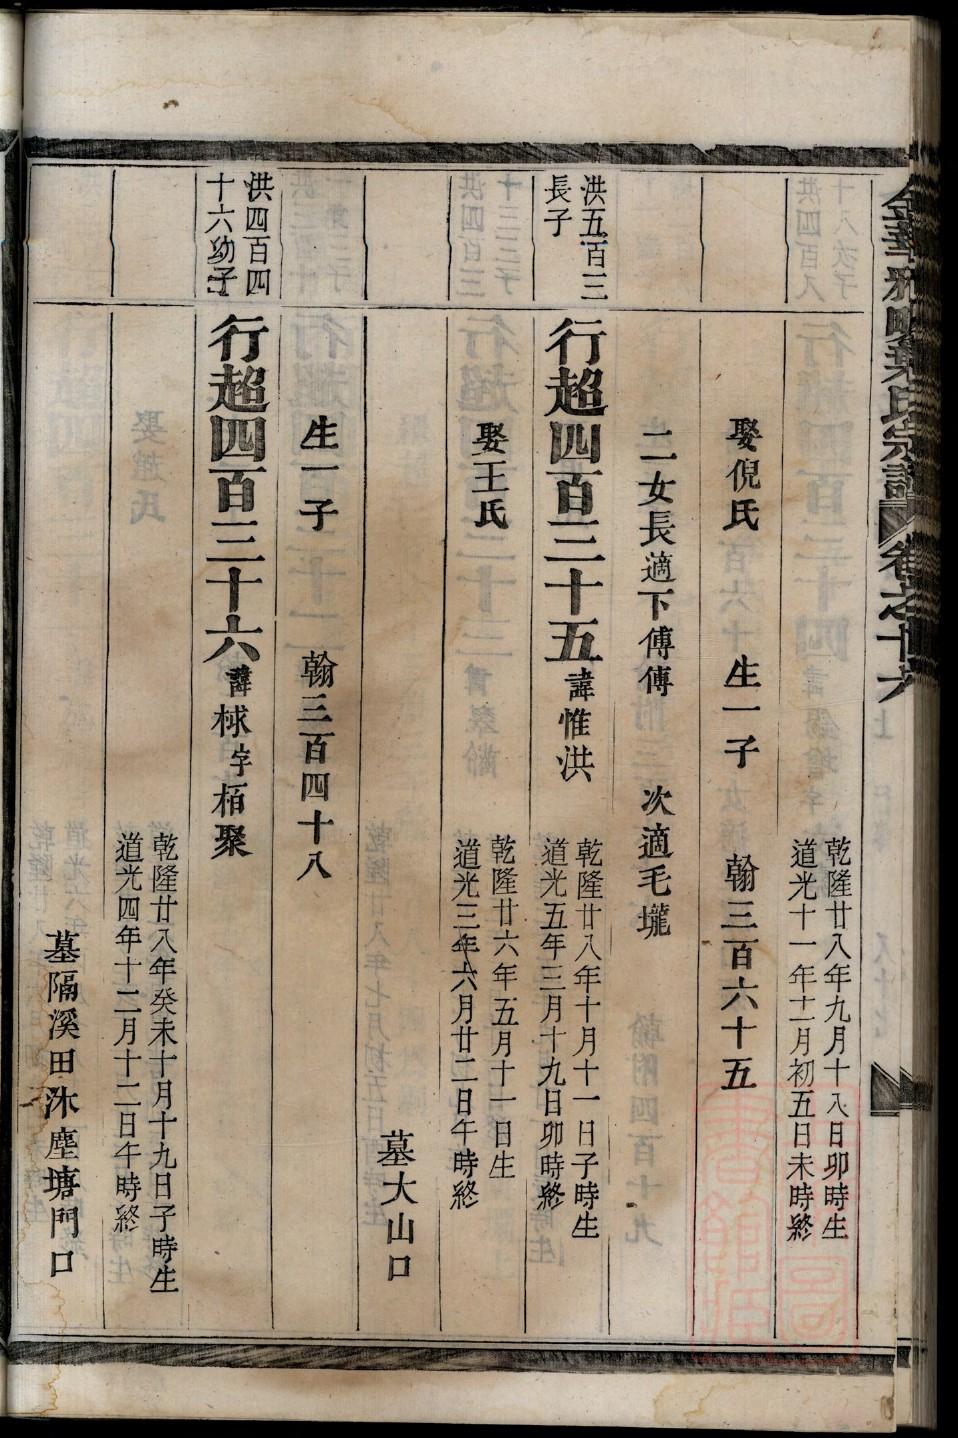 乾隆廿八年九月十八日卯時生
道光十一年十二月初五日未時終
娶倪氏 生一子 翰三百六十五
二女長適下傅傅 次適毛壠
洪五百三
長子
行超四百三十五諱惟洪
乾隆廿八年十月十一日子時生
道光五年三月十九日卯時終
娶王氏
乾隆廿六年五月十一日生
道光三年六月廿二日午時終
墓大山口
生一子 翰三百四十八
洪四百四
十六幼子
行超四百三十六諱梂字栢聚
乾隆廿八年癸未十月十九日子時生
道光四年十二月十二日午時終
墓隔溪田沐塵塘門口